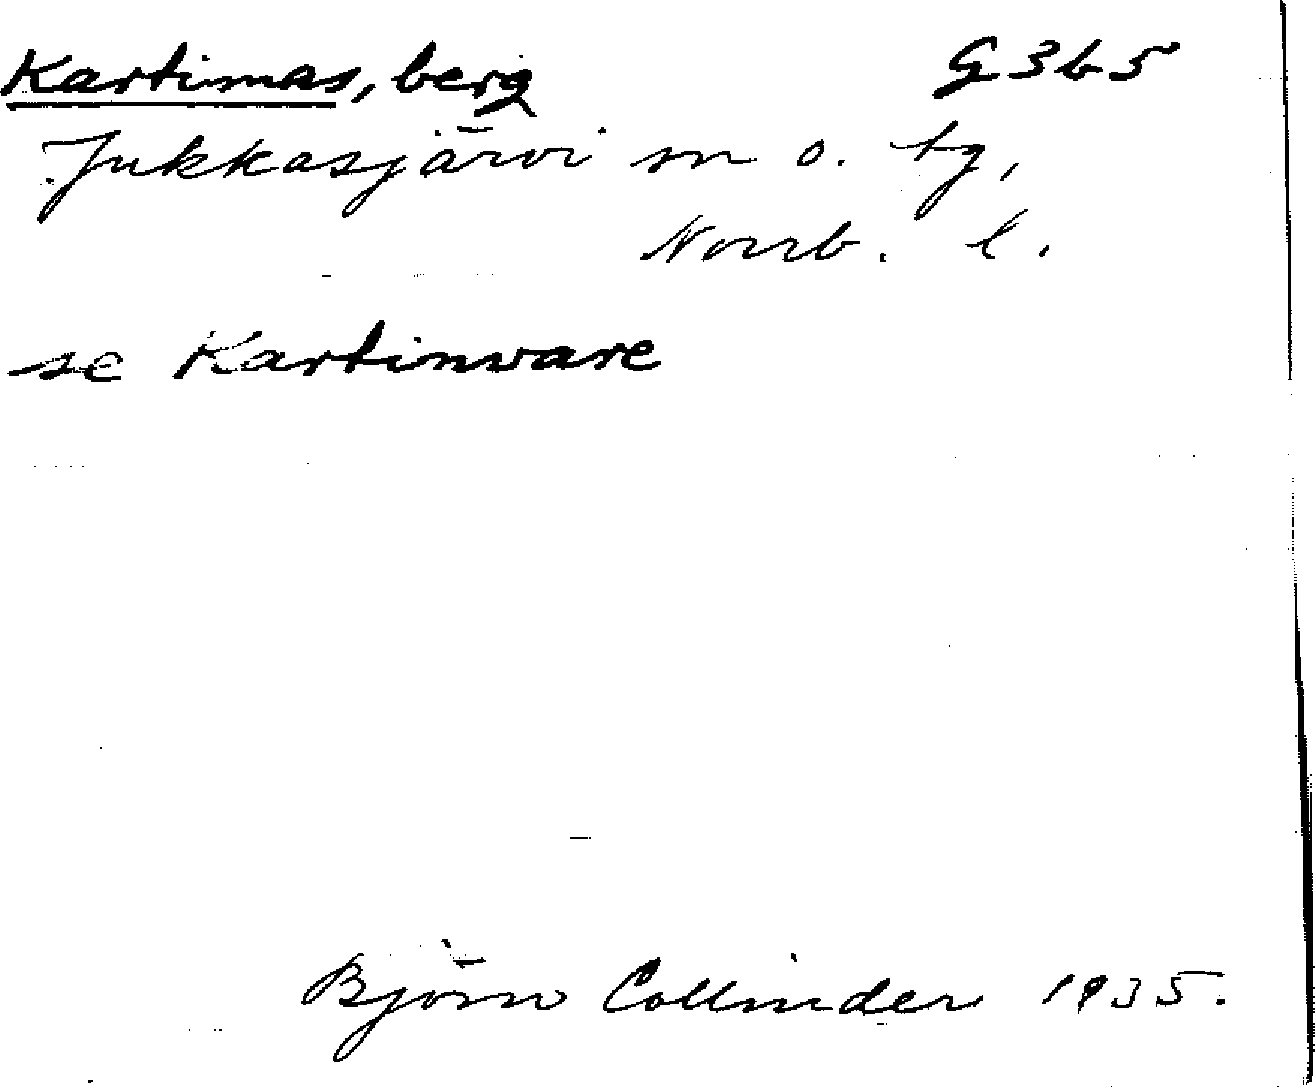 Kartimas, berg G3b5
Jukkasjärvi sn o. tg,
Norrb. l.
se Kartinvare
Björn Collinder 1935.